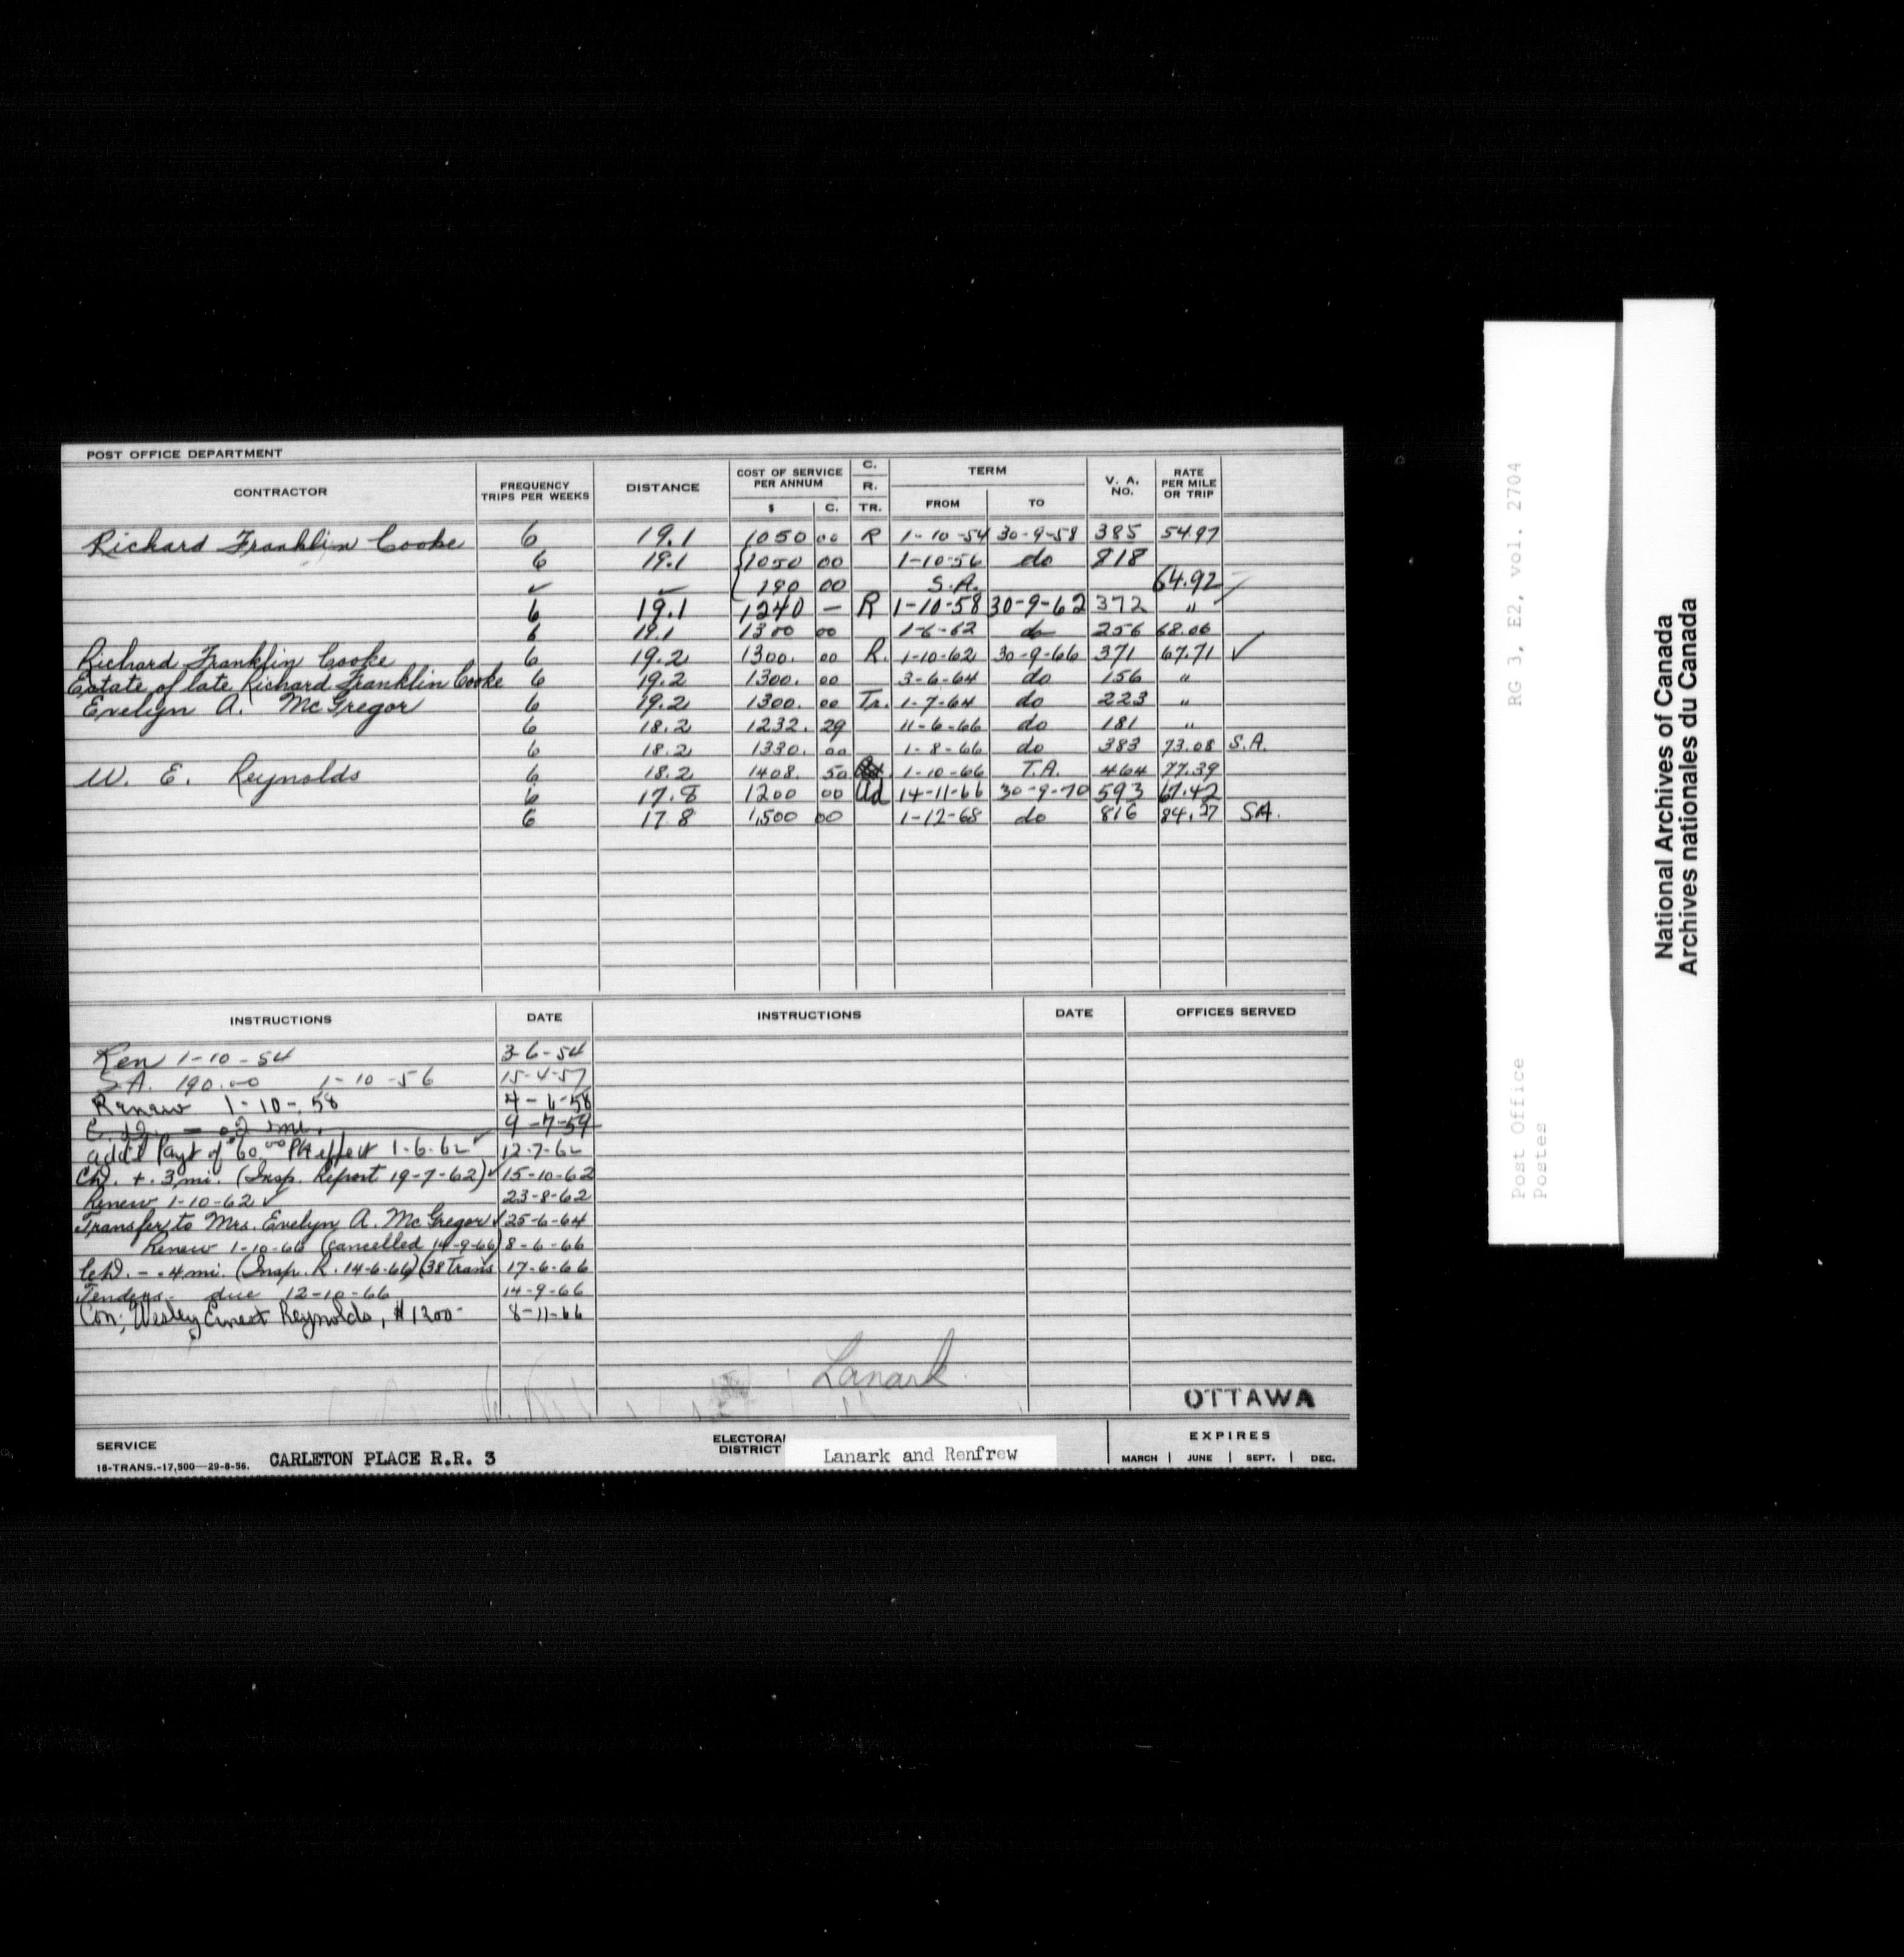 POST OFFICE DEPARTMENT
CONTRACTOR FREQUENCY TRIPS PER WEEKS DISTANCE COST OF SERVICE PER ANNUM $ C. C. R. TR. TERM FROM TO V. A. NO. RATE PER MILE OR TRIP
Richard Franklin Cooke 6 19.1 1050 00 R 1-10-54 30-9-58 385 54.97
6 19.1 1050 00 1-10-56 do 818
✓ ✓ 190 00 S.A. 64.92
6 19.1 1240 — R 1-10-58 30-9-62 372 "
6 19.1 1300 00 1-6-62 do 256 68.06
Richard Franklin Cooke 6 19.2 1300. 00 R. 1-10-62 30-9-66 371 67.71 ✓
Estate of late Richard Franklin Cooke 6 19.2 1300. 00 3-6-64 do 156 "
Evelyn A. McGregor 6 19.2 1300. 00 Tr. 1-7-64 do 223 "
6 18.2 1232. 29 11-6-66 do 181 "
6 18.2 1330. 00 1-8-66 do 383 73.08 S.A.
W. E. Reynolds 6 18.2 1408. 50 1-10-66 T.A. 464 77.39
6 17.8 1200 00 Ad 14-11-66 30-9-70 593 67.42
6 17.8 1,500 00 1-12-68 do 816 84.27 SA.
INSTRUCTIONS DATE INSTRUCTIONS DATE OFFICES SERVED
Ren 1-10-54 3-6-54
S.A. 190.00 1-10-56 15-4-57
Renew 1-10-58 4-6-58
mi. 9-7-59
add'l Payt of $60.00 PA effect 1-6-62 ✓ 12-7-62
Ch'd. + .3 mi. (Insp. Report 19-7-62) ✓ 15-10-62
Renew 1-10-62 ✓ 23-8-62
Transfer to Mrs. Evelyn A. McGregor ✓ 25-6-64
Renew 1-10-66 (cancelled 14-9-66) 8-6-66
Ch'd. - .4 mi. (Insp. R. 14-6-66) (38 Trans 17-6-66
Tenders - due 12-10-66 14-9-66
Con; Wesley Ernest Reynolds, $1200- 8-11-66
Lanark
OTTAWA
SERVICE CARLETON PLACE R.R. 3 ELECTORAL DISTRICT Lanark and Renfrew EXPIRES
18-TRANS.-17,500—29-8-56. MARCH | JUNE | SEPT. | DEC.
RG 3, E2, vol. 2704
Post Office
Postes
National Archives of Canada
Archives nationales du Canada